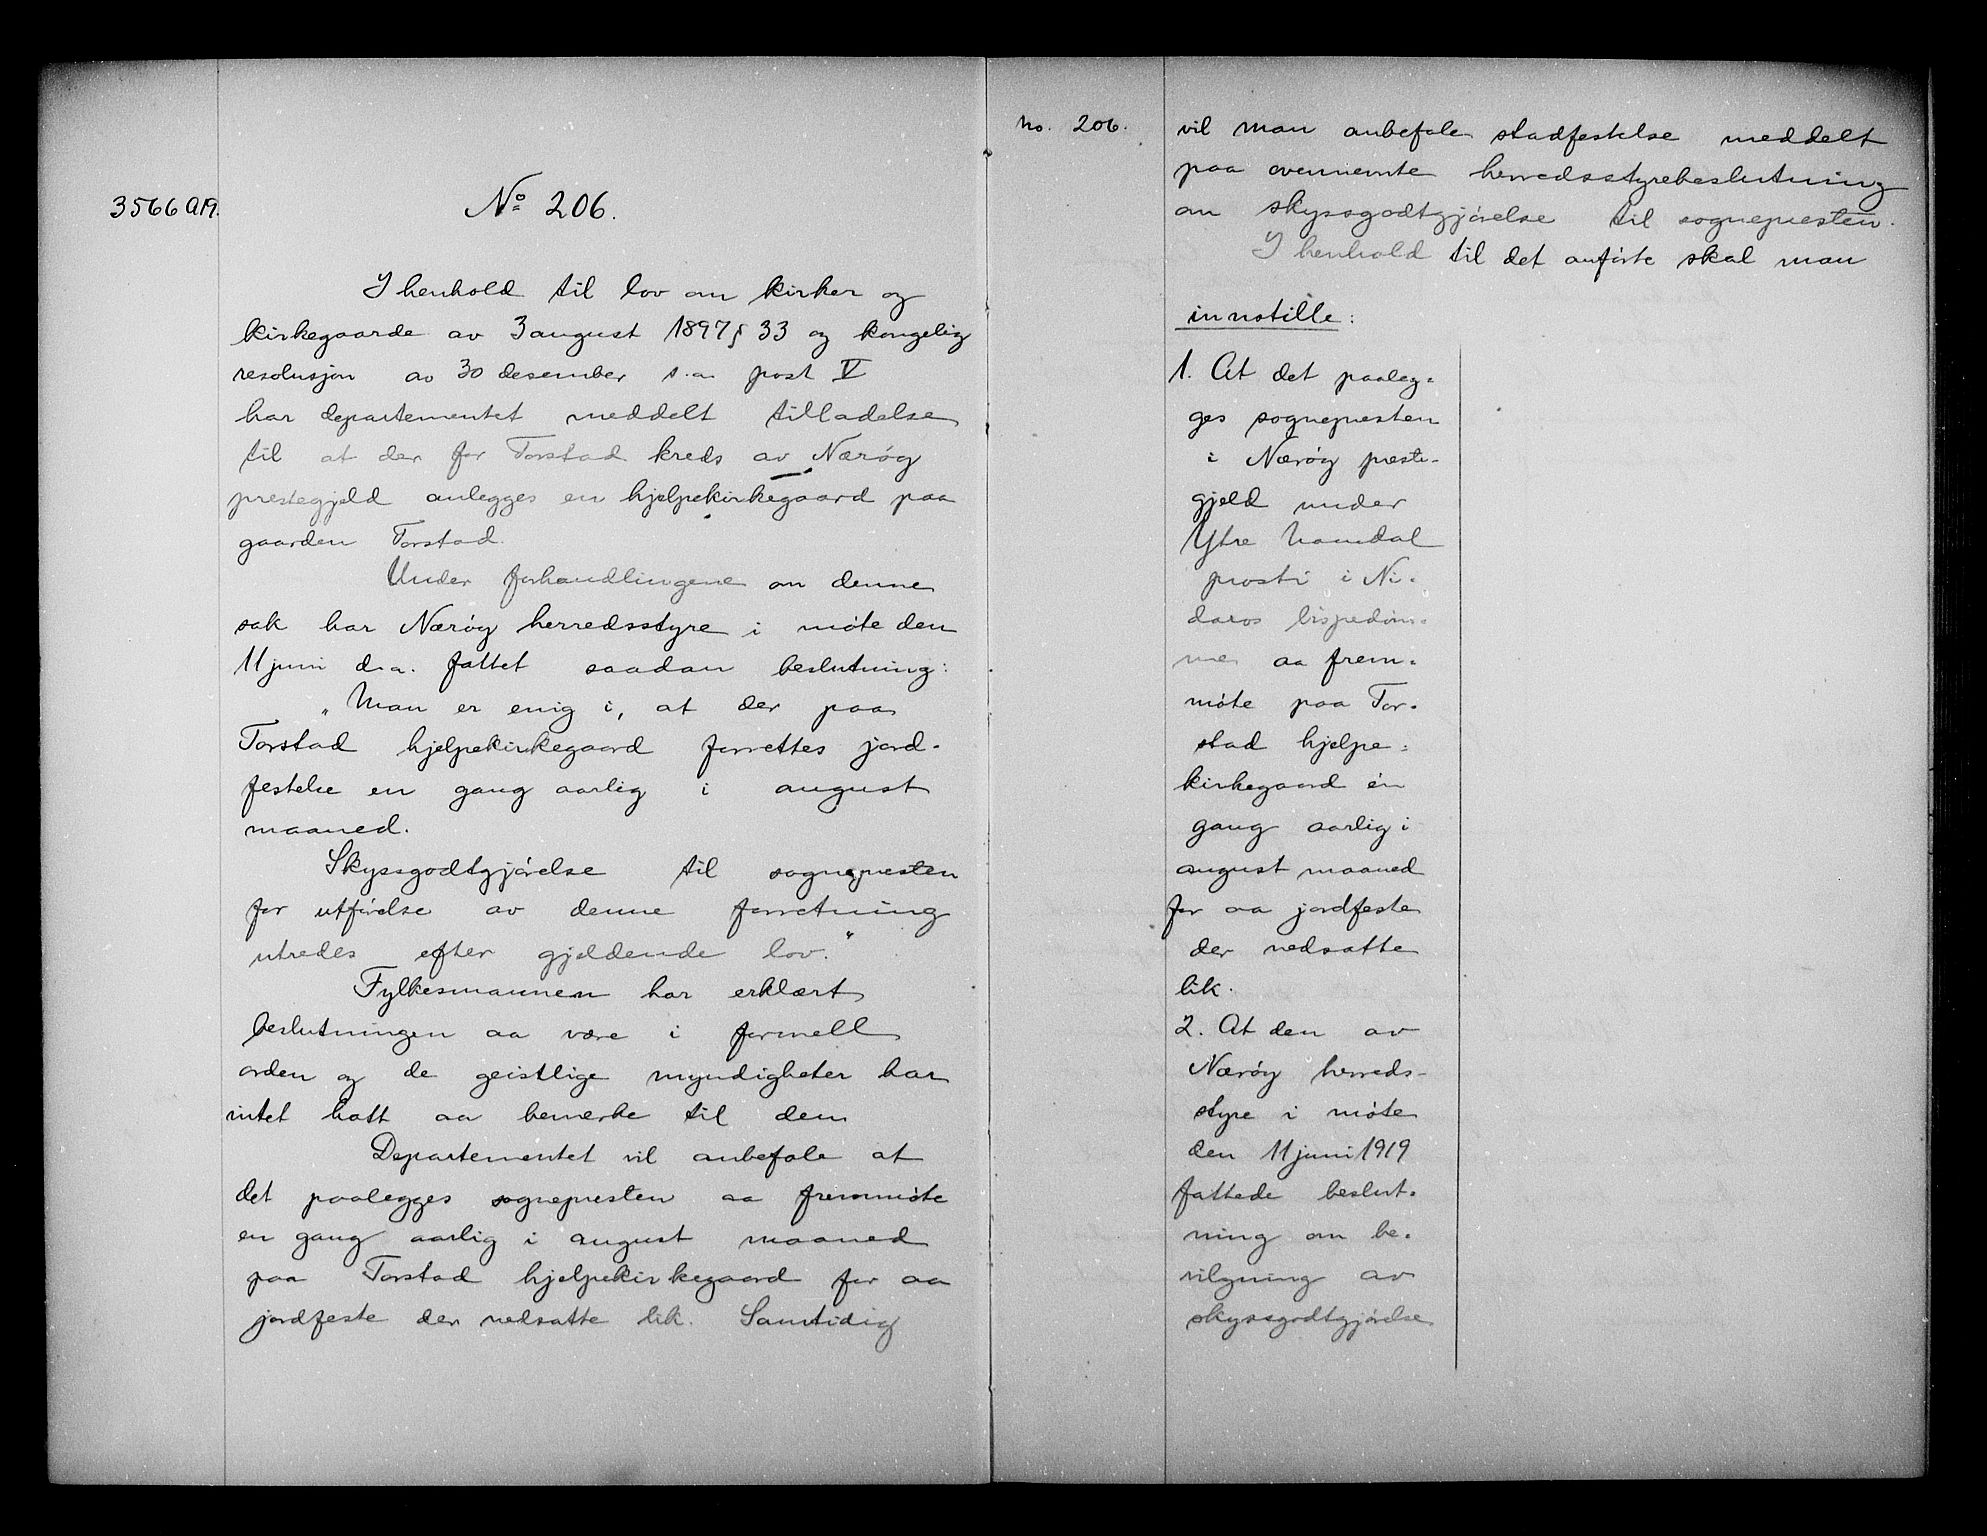 3566 A19.
No 206.
I henhold til lov om kirker og
kirkegaarde av 3 august 1897 § 33 og kongelig
resolusjon av 30 desember s.a. post V
har departementet meddelt tilladelse
til at der for Torstad kreds av Nærøy
prestegjeld anlegges en hjelpekirkegaard paa
gaarden Torstad.
Under forhandlingene om denne
sak har Nærøy herredsstyre i møte den
11 juni d.a. fattet saadan beslutning:
"Man er enig i, at der paa
Torstad hjelpekirkegaard forrettes jord-
festelse en gang aarlig i august
maaned.
Skyssgodtgjørelse til sognepresten
for utførelse av denne forretning
utredes efter gjeldende lov."
Fylkesmannen har erklært
beslutningen aa være i formell
orden og de geistlige myndigheter har
intet hatt aa bemerke til den
Departementet vil anbefale at
det paalegges sognepresten aa fremmøte
en gang aarlig i august maaned
paa Torstad hjelpekirkegaard for aa
jordfeste der nedsatte lik. Samtidig
No. 206.
vil man anbefale stadfestelse meddelt
paa ovennevnte herredsstyrebeslutning
om skyssgodtgjørelse til sognepresten.
I henhold til det anførte skal man
innstille:
1. At det paaleg-
ges sognepresten
i Nærøy preste-
gjeld under
Ytre Namdal
prosti i Ni-
daros bispedøm-
me aa frem-
møte paa Tor-
stad hjelpe-
kirkegaard én
gang aarlig i
august maaned
for aa jordfeste
der nedsatte
lik.
2. At den av
Nærøy herreds-
styre i møte
den 11 juni 1919
fattede beslut-
ning om be-
vilgning av
skyssgodtgjørelse